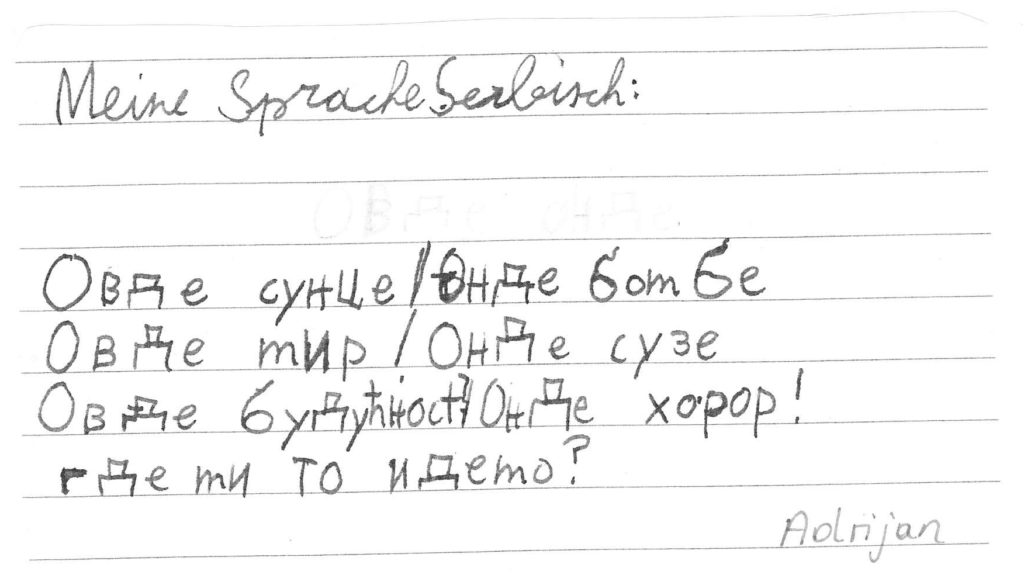 Meine Sprache Serbisch:
Овде сунце / Онде бомбе
Овде мир / Онде сузе
Овде будућност / Онде хорор!
где ми то идемо?
Adrijan